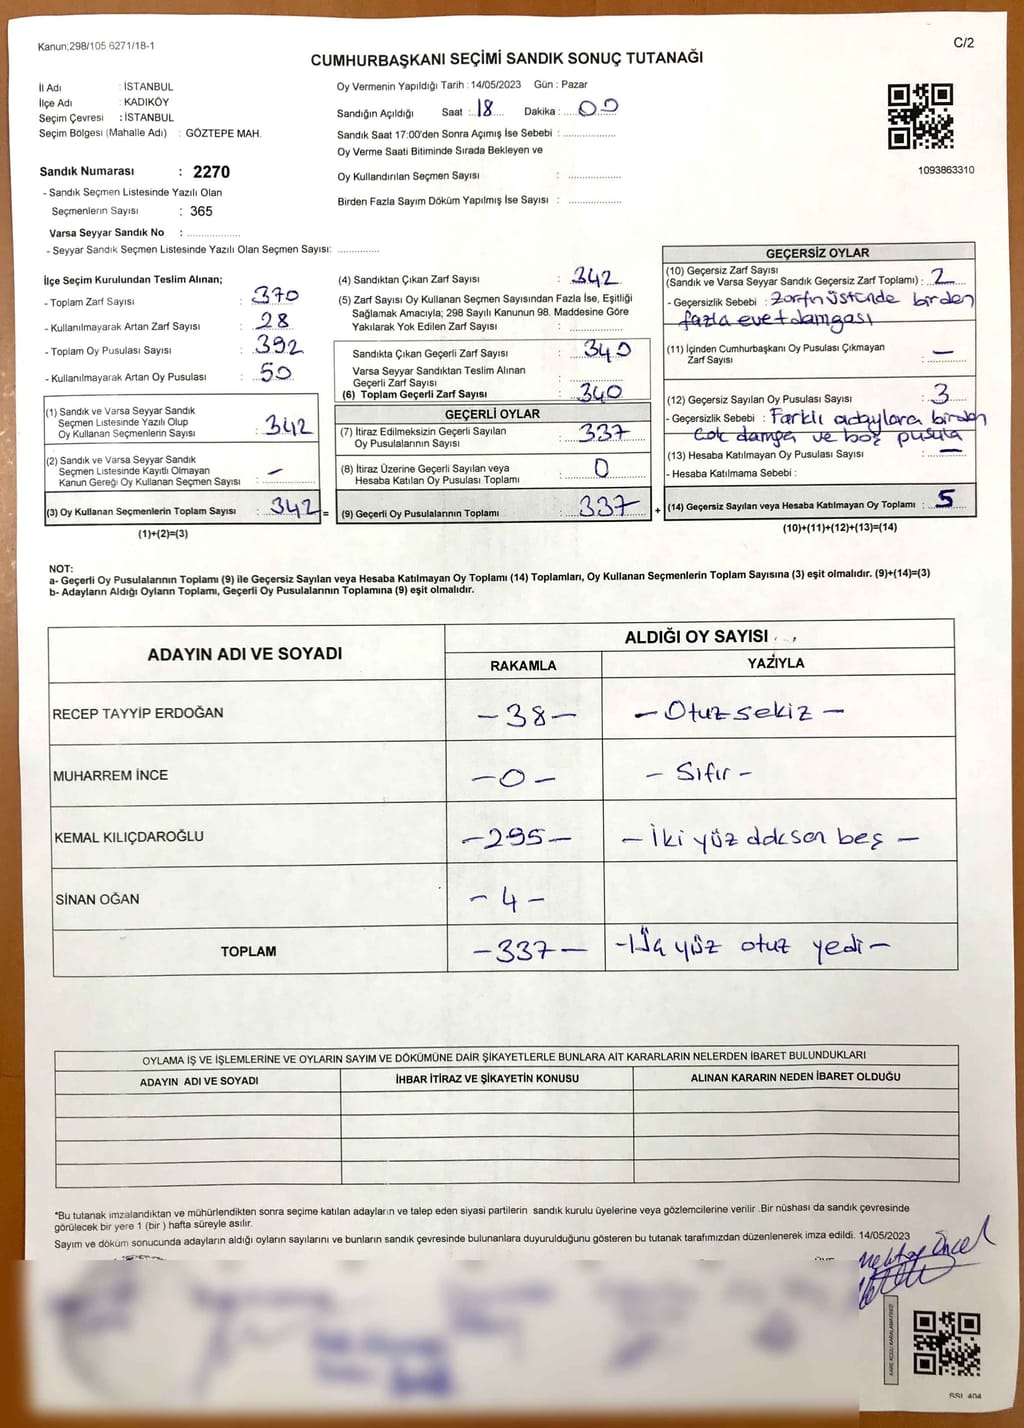 Kanun;298/105 6271/18-1
C/2
CUMHURBAŞKANI SEÇİMİ SANDIK SONUÇ TUTANAĞI
İl Adı : İSTANBUL
İlçe Adı : KADIKÖY
Seçim Çevresi : İSTANBUL
Seçim Bölgesi (Mahalle Adı) : GÖZTEPE MAH.
Oy Vermenin Yapıldığı Tarih : 14/05/2023 Gün : Pazar
Sandığın Açıldığı Saat : 18 Dakika : 00
Sandık Saat 17:00'den Sonra Açımış İse Sebebi :
Oy Verme Saati Bitiminde Sırada Bekleyen ve
Oy Kullandırılan Seçmen Sayısı :
Birden Fazla Sayım Döküm Yapılmış İse Sayısı :
1093863310
Sandık Numarası : 2270
- Sandık Seçmen Listesinde Yazılı Olan
Seçmenlerin Sayısı : 365
Varsa Seyyar Sandık No :
- Seyyar Sandık Seçmen Listesinde Yazılı Olan Seçmen Sayısı:
İlçe Seçim Kurulundan Teslim Alınan;
- Toplam Zarf Sayısı : 370
- Kullanılmayarak Artan Zarf Sayısı : 28
- Toplam Oy Pusulası Sayısı : 392
- Kullanılmayarak Artan Oy Pusulası : 50
(1) Sandık ve Varsa Seyyar Sandık
Seçmen Listesinde Yazılı Olup
Oy Kullanan Seçmenlerin Sayısı : 342
(2) Sandık ve Varsa Seyyar Sandık
Seçmen Listesinde Kayıtlı Olmayan
Kanun Gereği Oy Kullanan Seçmen Sayısı : —
(3) Oy Kullanan Seçmenlerin Toplam Sayısı : 342 =
(1)+(2)=(3)
(4) Sandıktan Çıkan Zarf Sayısı : 342
(5) Zarf Sayısı Oy Kullanan Seçmen Sayısından Fazla İse, Eşitliği
Sağlamak Amacıyla; 298 Sayılı Kanunun 98. Maddesine Göre
Yakılarak Yok Edilen Zarf Sayısı :
Sandıkta Çıkan Geçerli Zarf Sayısı : 340
Varsa Seyyar Sandıktan Teslim Alınan
Geçerli Zarf Sayısı :
(6) Toplam Geçerli Zarf Sayısı : 340
GEÇERLİ OYLAR
(7) İtiraz Edilmeksizin Geçerli Sayılan
Oy Pusulalarının Sayısı : 337
(8) İtiraz Üzerine Geçerli Sayılan veya
Hesaba Katılan Oy Pusulası Toplamı : 0
(9) Geçerli Oy Pusulalarının Toplamı : 337 +
GEÇERSİZ OYLAR
(10) Geçersiz Zarf Sayısı
(Sandık ve Varsa Seyyar Sandık Geçersiz Zarf Toplamı) : 2
- Geçersizlik Sebebi : Zarfın üstünde birden
fazla evet damgası
(11) İçinden Cumhurbaşkanı Oy Pusulası Çıkmayan
Zarf Sayısı : —
(12) Geçersiz Sayılan Oy Pusulası Sayısı : 3
- Geçersizlik Sebebi : Farklı adaylara birden
çok damga ve boş pusula
(13) Hesaba Katılmayan Oy Pusulası Sayısı : —
- Hesaba Katılmama Sebebi :
(14) Geçersiz Sayılan veya Hesaba Katılmayan Oy Toplamı : 5
(10)+(11)+(12)+(13)=(14)
NOT:
a- Geçerli Oy Pusulalarının Toplamı (9) ile Geçersiz Sayılan veya Hesaba Katılmayan Oy Toplamı (14) Toplamları, Oy Kullanan Seçmenlerin Toplam Sayısına (3) eşit olmalıdır. (9)+(14)=(3)
b- Adayların Aldığı Oyların Toplamı, Geçerli Oy Pusulalarının Toplamına (9) eşit olmalıdır.
ADAYIN ADI VE SOYADI
ALDIĞI OY SAYISI
RAKAMLA YAZIYLA
RECEP TAYYİP ERDOĞAN -38- -Otuz sekiz-
MUHARREM İNCE -0- -Sıfır-
KEMAL KILIÇDAROĞLU -295- -İki yüz doksan beş-
SİNAN OĞAN -4-
TOPLAM -337- -Üç yüz otuz yedi-
OYLAMA İŞ VE İŞLEMLERİNE VE OYLARIN SAYIM VE DÖKÜMÜNE DAİR ŞİKAYETLERLE BUNLARA AİT KARARLARIN NELERDEN İBARET BULUNDUKLARI
ADAYIN ADI VE SOYADI İHBAR İTİRAZ VE ŞİKAYETİN KONUSU ALINAN KARARIN NEDEN İBARET OLDUĞU
*Bu tutanak imzalandıktan ve mühürlendikten sonra seçime katılan adayların ve talep eden siyasi partilerin sandık kurulu üyelerine veya gözlemcilerine verilir .Bir nüshası da sandık çevresinde
görülecek bir yere 1 (bir ) hafta süreyle asılır.
Sayım ve döküm sonucunda adayların aldığı oyların sayılarını ve bunların sandık çevresinde bulunanlara duyurulduğunu gösteren bu tutanak tarafımızdan düzenlenerek imza edildi. 14/05/2023
Öncel